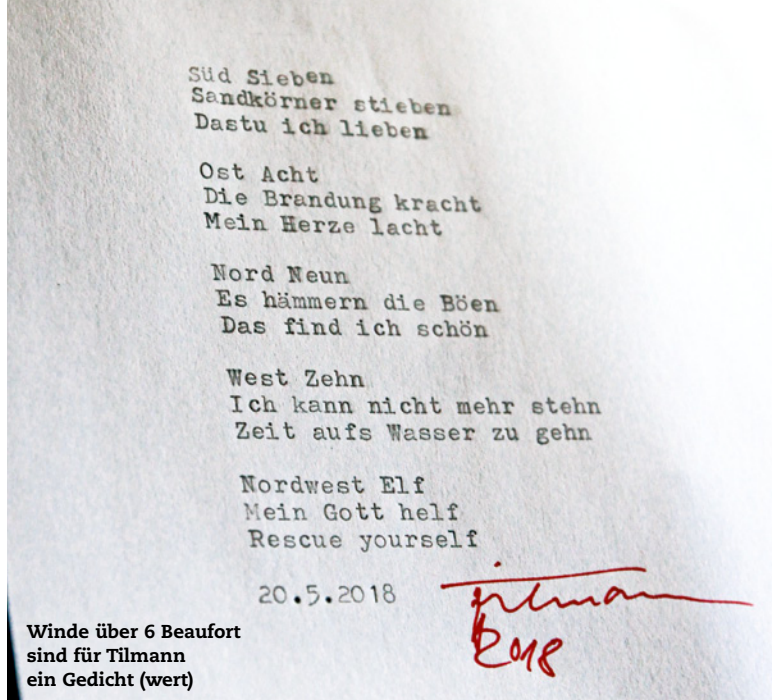 Süd Sieben
Sandkörner stieben
Dastu ich lieben
Ost Acht
Die Brandung kracht
Mein Herze lacht
Nord Neun
Es hämmern die Böen
Das find ich schön
West Zehn
Ich kann nicht mehr stehn
Zeit aufs Wasser zu gehn
Nordwest Elf
Mein Gott helf
Rescue yourself
20.5.2018
Tilmann
2018
Winde über 6 Beaufort
sind für Tilmann
ein Gedicht (wert)